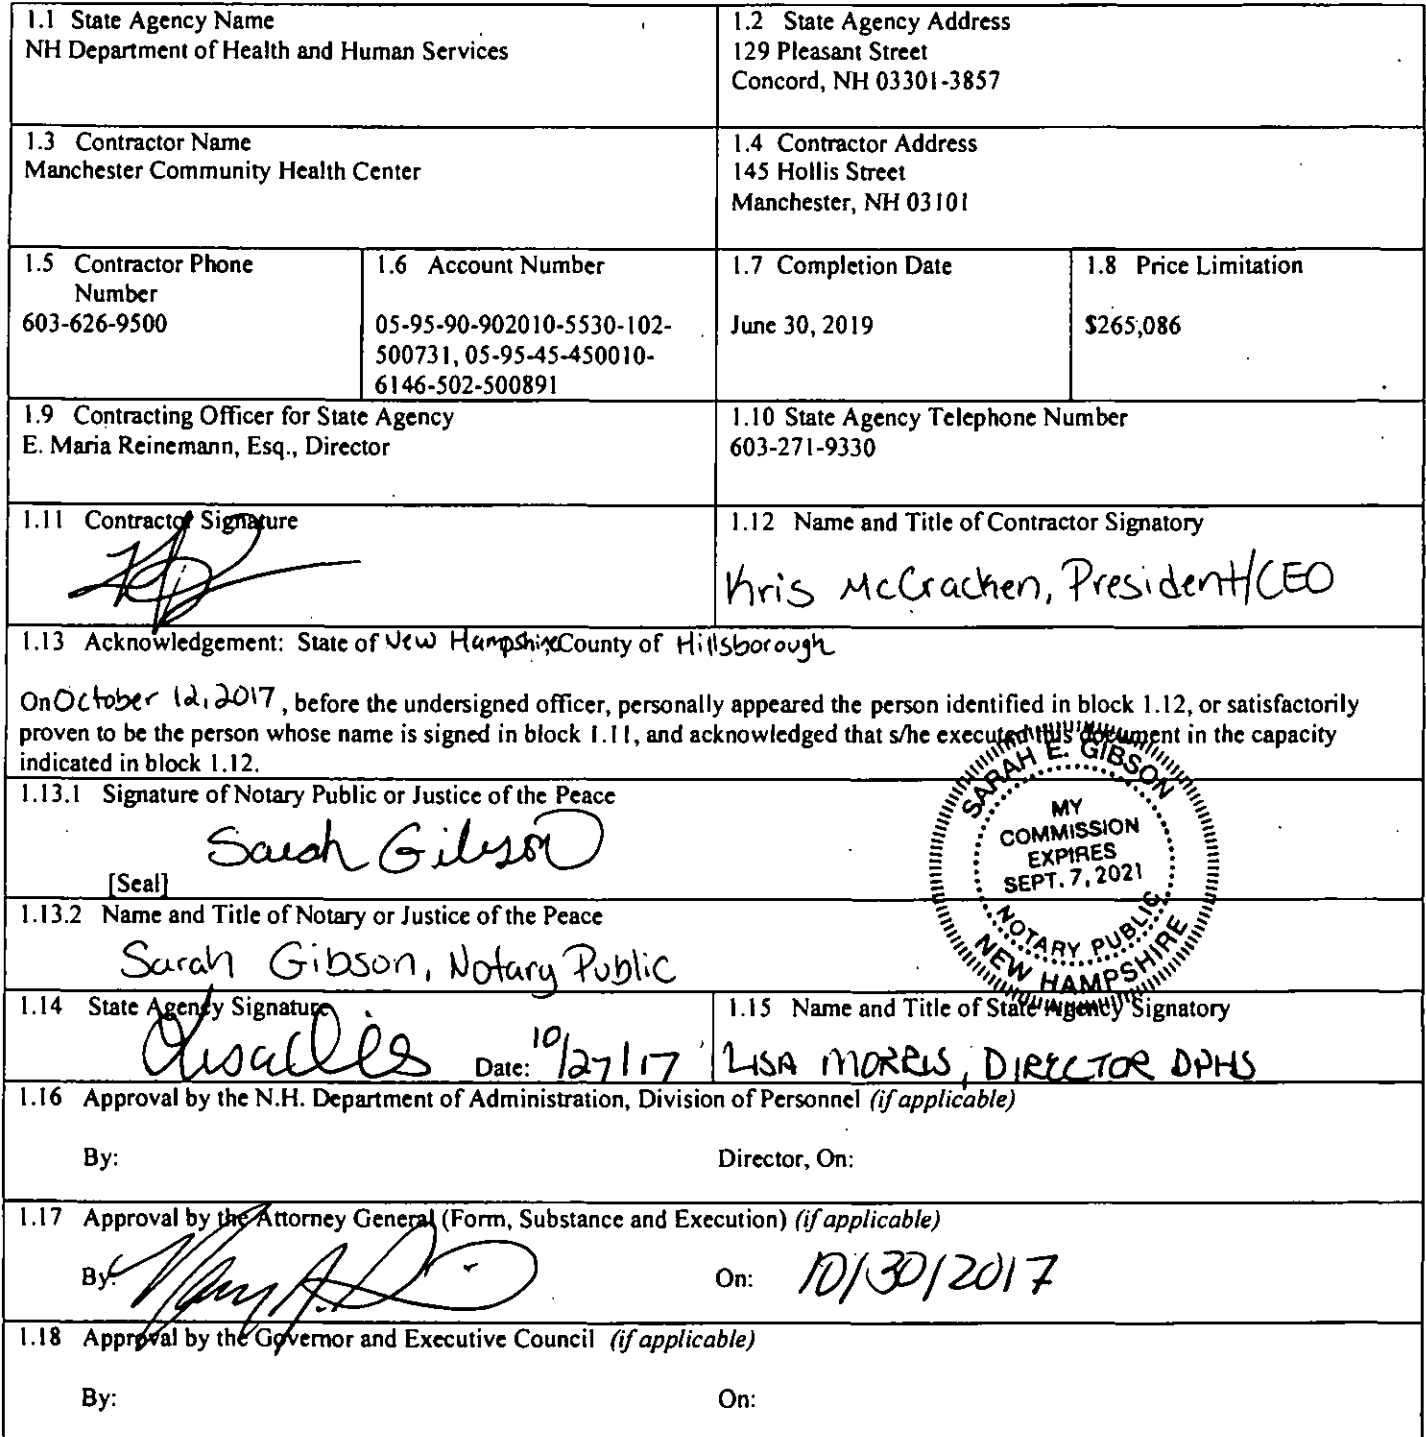 1.1 State Agency Name
NH Department of Health and Human Services
1.2 State Agency Address
129 Pleasant Street
Concord, NH 03301-3857
1.3 Contractor Name
Manchester Community Health Center
1.4 Contractor Address
145 Hollis Street
Manchester, NH 03101
1.5 Contractor Phone
Number
603-626-9500
1.6 Account Number
05-95-90-902010-5530-102-
500731, 05-95-45-450010-
6146-502-500891
1.7 Completion Date
June 30, 2019
1.8 Price Limitation
$265,086
1.9 Contracting Officer for State Agency
E. Maria Reinemann, Esq., Director
1.10 State Agency Telephone Number
603-271-9330
1.11 Contractor Signature
1.12 Name and Title of Contractor Signatory
Kris McCracken, President/CEO
1.13 Acknowledgement: State of New Hampshire County of Hillsborough
On October 12, 2017, before the undersigned officer, personally appeared the person identified in block 1.12, or satisfactorily
proven to be the person whose name is signed in block 1.11, and acknowledged that s/he executed this document in the capacity
indicated in block 1.12.
1.13.1 Signature of Notary Public or Justice of the Peace
Sarah Gibson
[Seal]
SARAH E. GIBSON
MY
COMMISSION
EXPIRES
SEPT. 7, 2021
NOTARY PUBLIC
NEW HAMPSHIRE
1.13.2 Name and Title of Notary or Justice of the Peace
Sarah Gibson, Notary Public
1.14 State Agency Signature
Date: 10/27/17
1.15 Name and Title of State Agency Signatory
LISA MORRIS, DIRECTOR DPHS
1.16 Approval by the N.H. Department of Administration, Division of Personnel (if applicable)
By:
Director, On:
1.17 Approval by the Attorney General (Form, Substance and Execution) (if applicable)
By:
On: 10/30/2017
1.18 Approval by the Governor and Executive Council (if applicable)
By:
On: